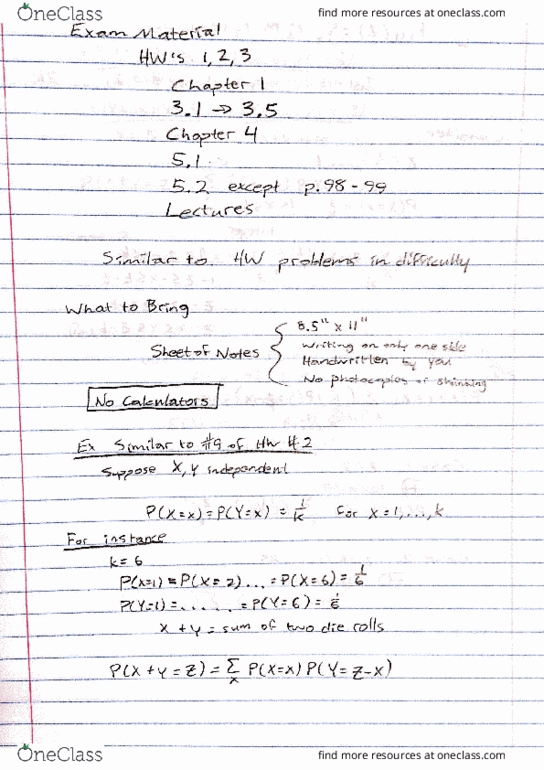 OneClass
find more resources at oneclass.com
Exam Material
HW's 1, 2, 3
Chapter 1
3.1 → 3.5
Chapter 4
5.1
5.2 except p.98-99
Lectures
Similar to HW problems in difficulty
What to Bring
Sheet of Notes { 8.5" x 11"
Writing on only one side
Handwritten by you
No photocopies or shrinking
No Calculators
Ex Similar to #9 of HW #2
Suppose X, Y independent
P(X=x) = P(Y=x) = 1/k for x=1,...,k
For instance
k=6
P(X=1) = P(X=2) ... = P(X=6) = 1/6
P(Y=1) = ...... = P(Y=6) = 1/6
X + Y = sum of two die rolls
P(X+Y=Z) = Σ_x P(X=x) P(Y=Z-x)
OneClass
find more resources at oneclass.com